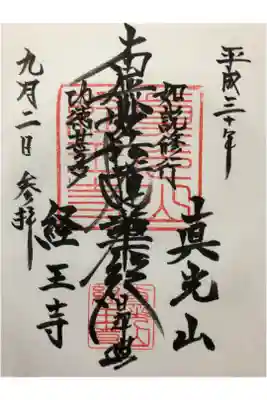 平成三十年
真光山
如説修行
南無妙法蓮華経
功徳甚多
経王寺
九月二日参拝